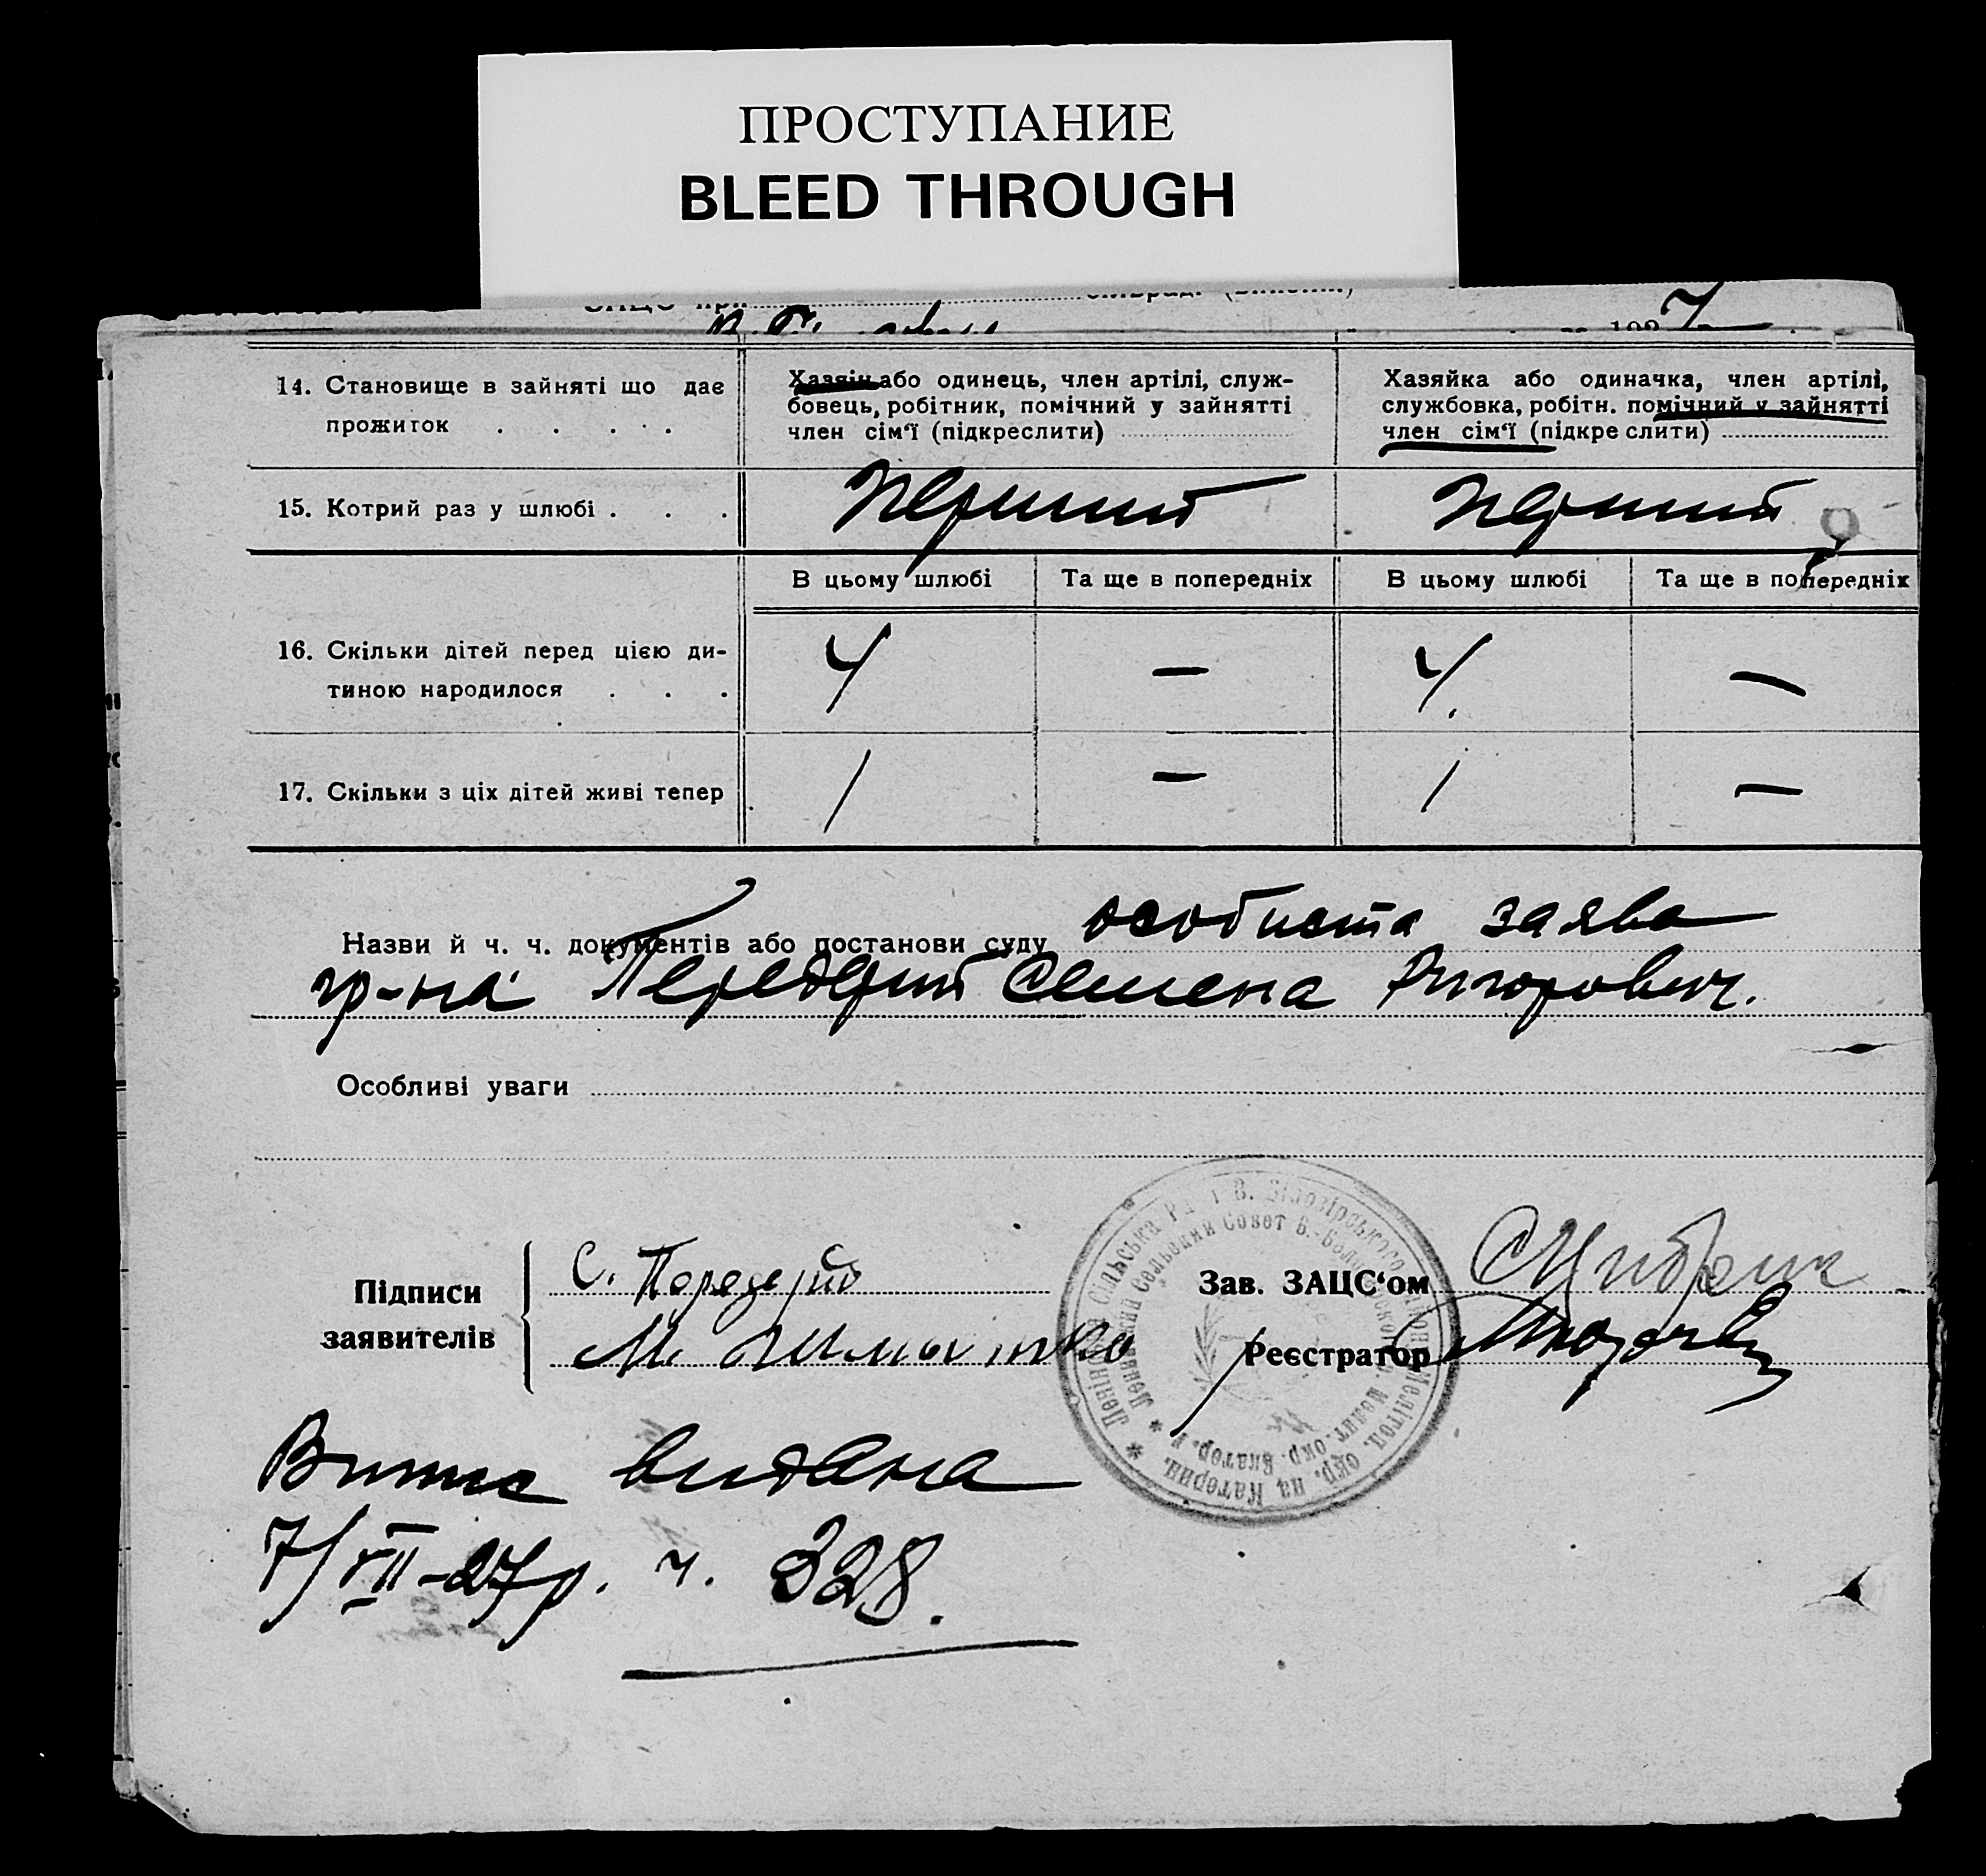 ПРОСТУПАНИЕ
BLEED THROUGH
192 7
14. Становище в зайняті що дає прожиток . . . . .
Хазяін або одинець, член артілі, служ-
бовець, робітник, помічний у зайнятті
член сім'ї (підкреслити)
Хазяйка або одиначка, член артілі,
службовка, робітн. помічний у зайнятті
член сім'ї (підкреслити)
15. Котрий раз у шлюбі . . .
перший
перший
В цьому шлюбі
Та ще в попередніх
В цьому шлюбі
Та ще в попередніх
16. Скільки дітей перед цією ди-
тиною народилося . . .
4
—
4.
—
17. Скільки з ціх дітей живі тепер
1
—
1
—
Назви й ч. ч. документів або постанови суду особиста заява
гр-на Передерий Семена Григорович.
Особливі уваги
Підписи
заявителів
С. Передерий
М.
Зав. ЗАЦС'ом
Реєстратор
Сільська
Сельский Совет
Мелітоп. окр. на Катерин.
видана
7/VII-27р. ч. 328.